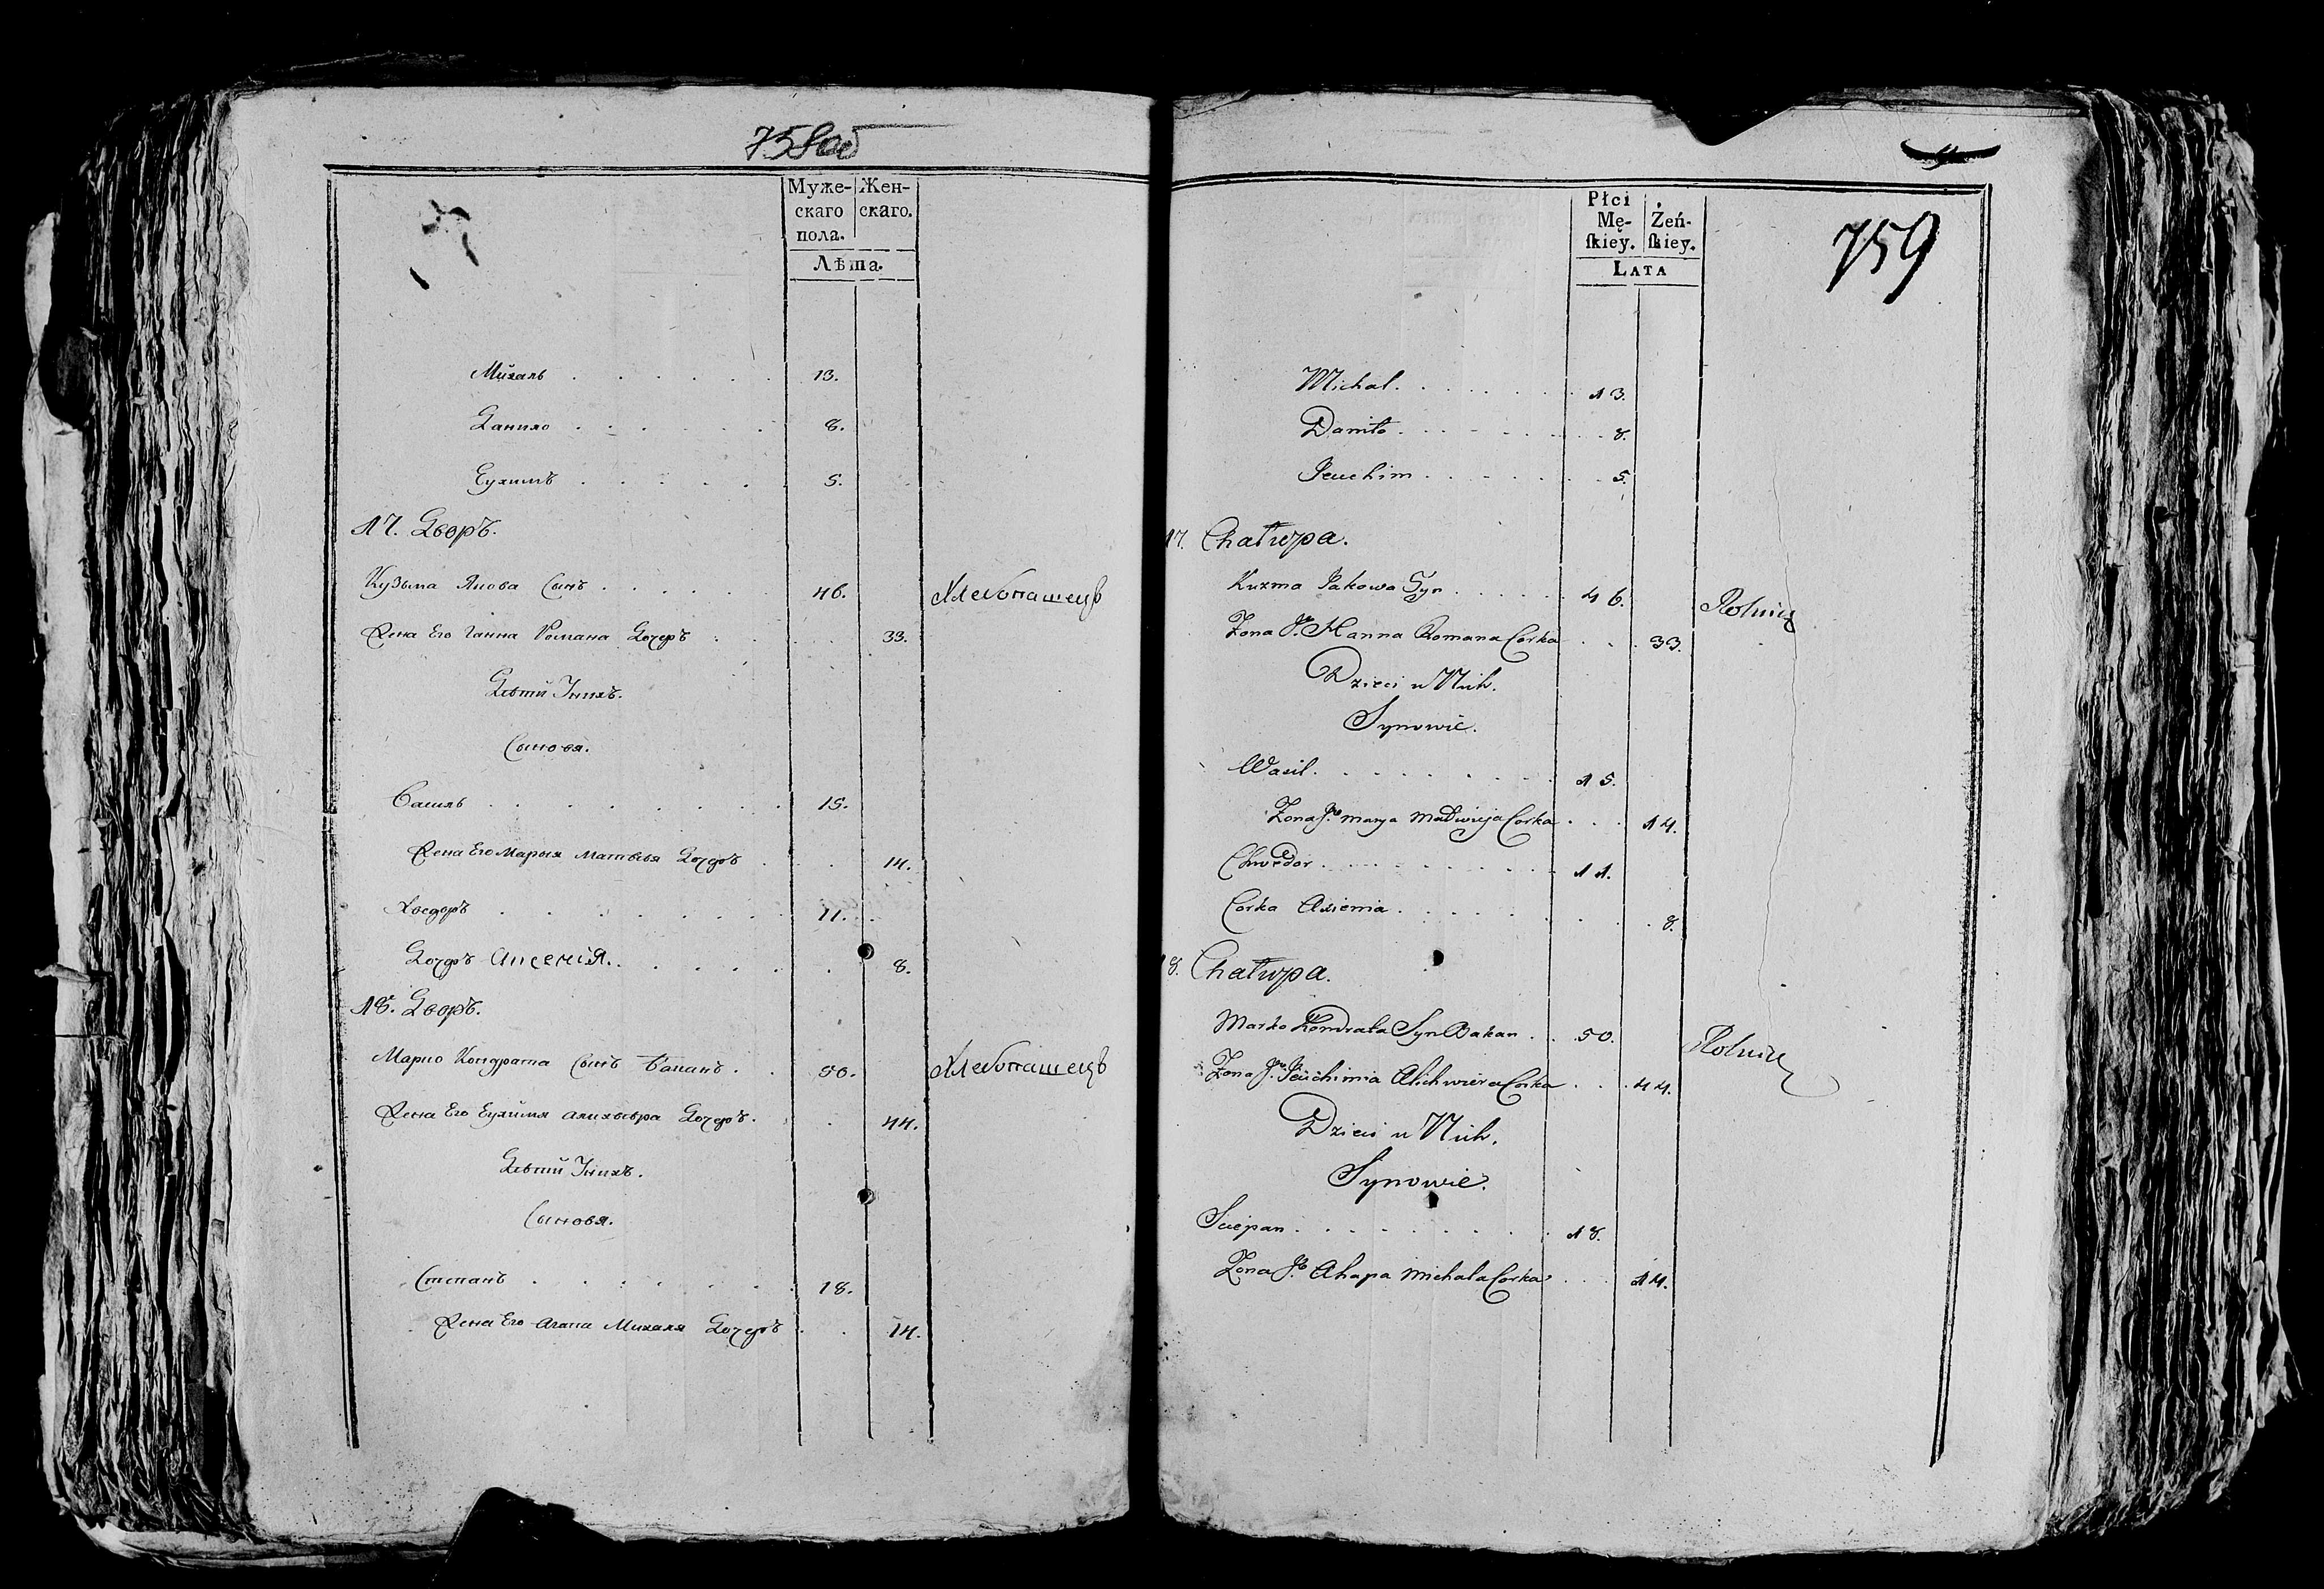 758об
Муже-
скаго
пола.
Жен-
скаго.
Лѣта.
Михаль 13.
Данило 8.
Еухимъ 5.
17. Дворъ.
Кузьма Якова Сынъ 46. Хлебопашецъ
Жена Его Ганна Романа Дочеръ 33.
Дѣтй Унихъ.
Сыновя.
Василь 15.
Жена Его Марыя Матвѣя Дочеръ 14.
Хведоръ 11.
Дочеръ Аксенія. 8.
18. Дворъ.
Марко Кондрата Сынъ Баканъ 50. Хлебопашецъ
Жена Его Еухймя Алихвѣра Дочеръ. 44.
Дѣтй Унихъ.
Сыновя.
Степанъ 18.
Жена Его Агапа Михала Дочеръ 14.
759
Płci
Mę-
ſkiey.
Żeń-
ſkiey.
LATA
Michal. 13.
Daniło 8.
Jeuchim 5.
17. Chałupa.
Kuzma Jakowa Syn 46. Rolnik
Zona Jo. Hanna Romana Corka 33.
Dzieci u Nich.
Synowie.
Wasil. 15.
Zona Jo. Marya Madwieja Corka 14.
Chwedor 11.
Corka Axienia 8.
18. Chałupa.
Marko Kondrata Syn Bakan 50. Rolnik
Zona Jo. Jeuchimia Alichwiera Corka 44.
Dzieci u Nich.
Synowie.
Sciepan 18.
Zona Jo. Ahapa Michala Corka 14.